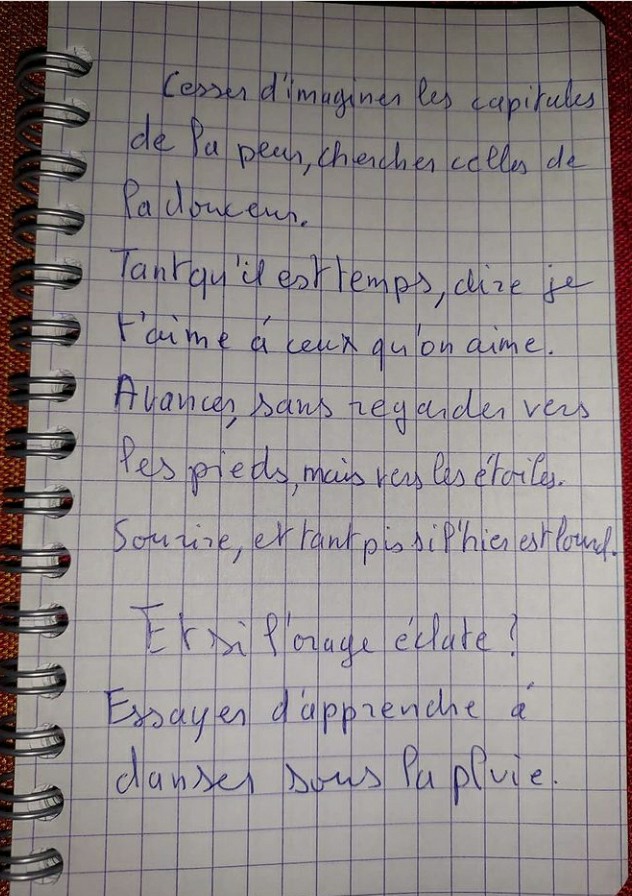 Cesser d'imaginer les capitales
de la peur, chercher celles de
la douceur.
Tant qu'il est temps, dire je
t'aime à ceux qu'on aime.
Avancer, sans regarder vers
les pieds, mais vers les étoiles.
Sourire, et tant pis si l'hier est lourd.
Et si l'orage éclate ?
Essayer d'apprendre à
danser sous la pluie.